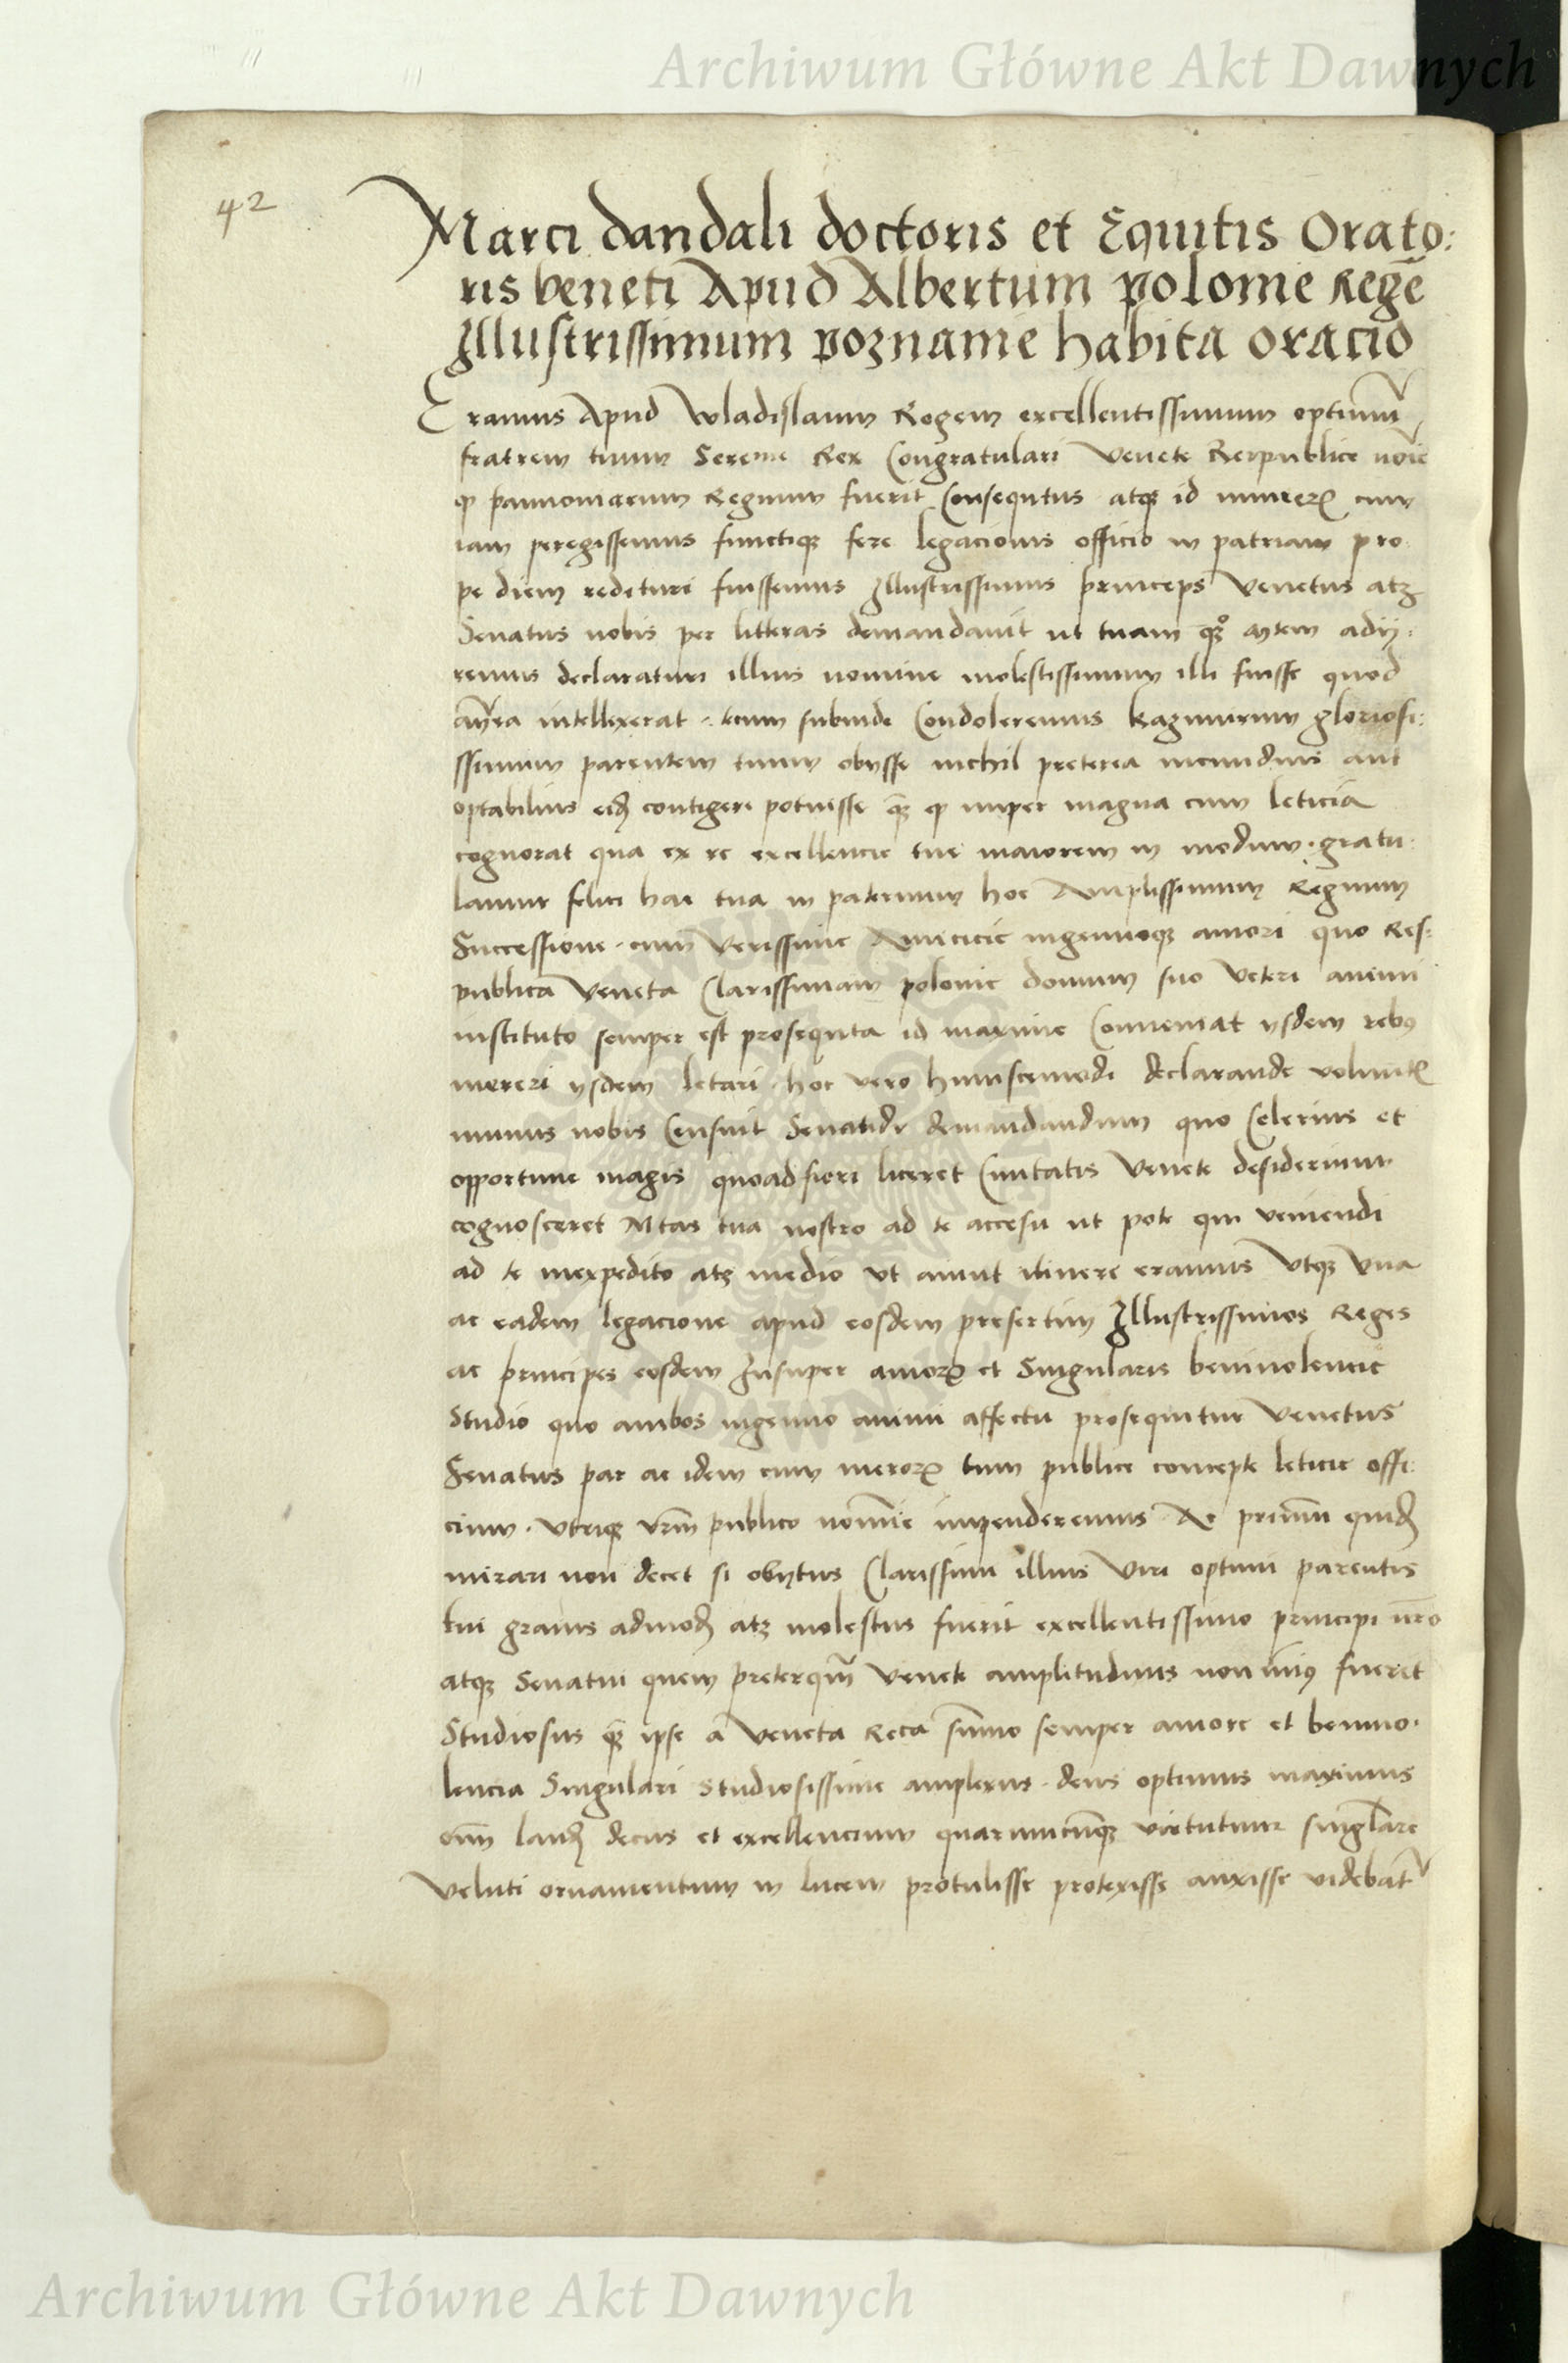 Archiwum Główne Akt Dawnych
42
Marci dandali doctoris et Equitis Orato:
ris veneti Apud Albertum polonie Regē
Illustrissimum poznanie habita oracio
Eramus Apud Wladislaum Regem excellentissimum optimū
fratrem tuum Serenne Rex Congratulari Venete Reipublice noīe
ꝙ pannoniarum Regnum fuerit Consequtus atqꝫ id muneris cum
iam peregissemus functiqꝫ fere legacionis officio in patriam pro
pe diem redituri fuissemus Illustrissimus princeps Venetus atqꝫ
Senatus nobis per litteras demandavit ut tuam adij:
remus declaraturi illius nomine molestissimum illi fuisse quod
intellexerat . tecum subinde Condoleremus Kazimirum gloriosi:
ssimum parentem tuum obysse nichil preterea iucundius aut
optabilius eidē contigeri potuisse ꝙ nuper magna cum leticia
cognorat qua ex re excellencie tue maiorem in modum . gratu:
lamur felici hac tua in paternum hoc Amplissimum Regnum
Successione . cum Verissime Amicicie ingenuoqꝫ amori quo Res:
publica Veneta Clarissimam polonie domum suo Veteri animi
instituto semper est prosequta id maxime Conveniat ysdem rebꝰ
mereri ysdem letari . hoc vero huiuscemodi declarande
munus nobis Censuit demandandum quo Celerius et
opportune magis quoad fieri liceret Civitatis Venete desiderium
cognosceret Mtas tua nostro ad te accesu ut pote qui veniendi
ad te inexpedito atqꝫ medio ut aiunt itinere eramus Utqꝫ Una
ac eadem legacione apud eosdem presertim Illustrissimos Reges
ac principes eosdem Insuper et Singularis benivolencie
Studio quo ambos ingenuo animi affectu prosequitur Venetus
Senatus par ac idem cum tum publice concepte leticie offi:
cium . Utriqꝫ vrm publico nomine impenderemus Ac primum quidē
mirari non decet si obytus Clarissimi illius Viri optimi parentis
tui gravis admodū atqꝫ molestus fuerit excellentissimo principi nrō
atqꝫ Senatui quem preterqm̄ Venete amplitudinis non minꝰ fueret
Studiosus ipse a Veneta summo semper amore et benivo:
lencia Singulari studiosissime amplexus . deus optimus maximus
laudū decus et excellencium quarumcūqꝫ virtutum singlare
Veluti ornamentum in lucem protulisse protexisse auxisse videbat
Archiwum Główne Akt Dawnych